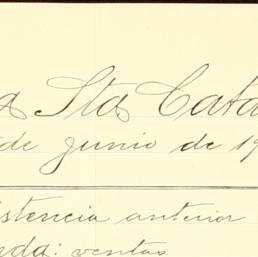 a Sta Cata
de Junio de 19
istencia anterior
nda: ventas